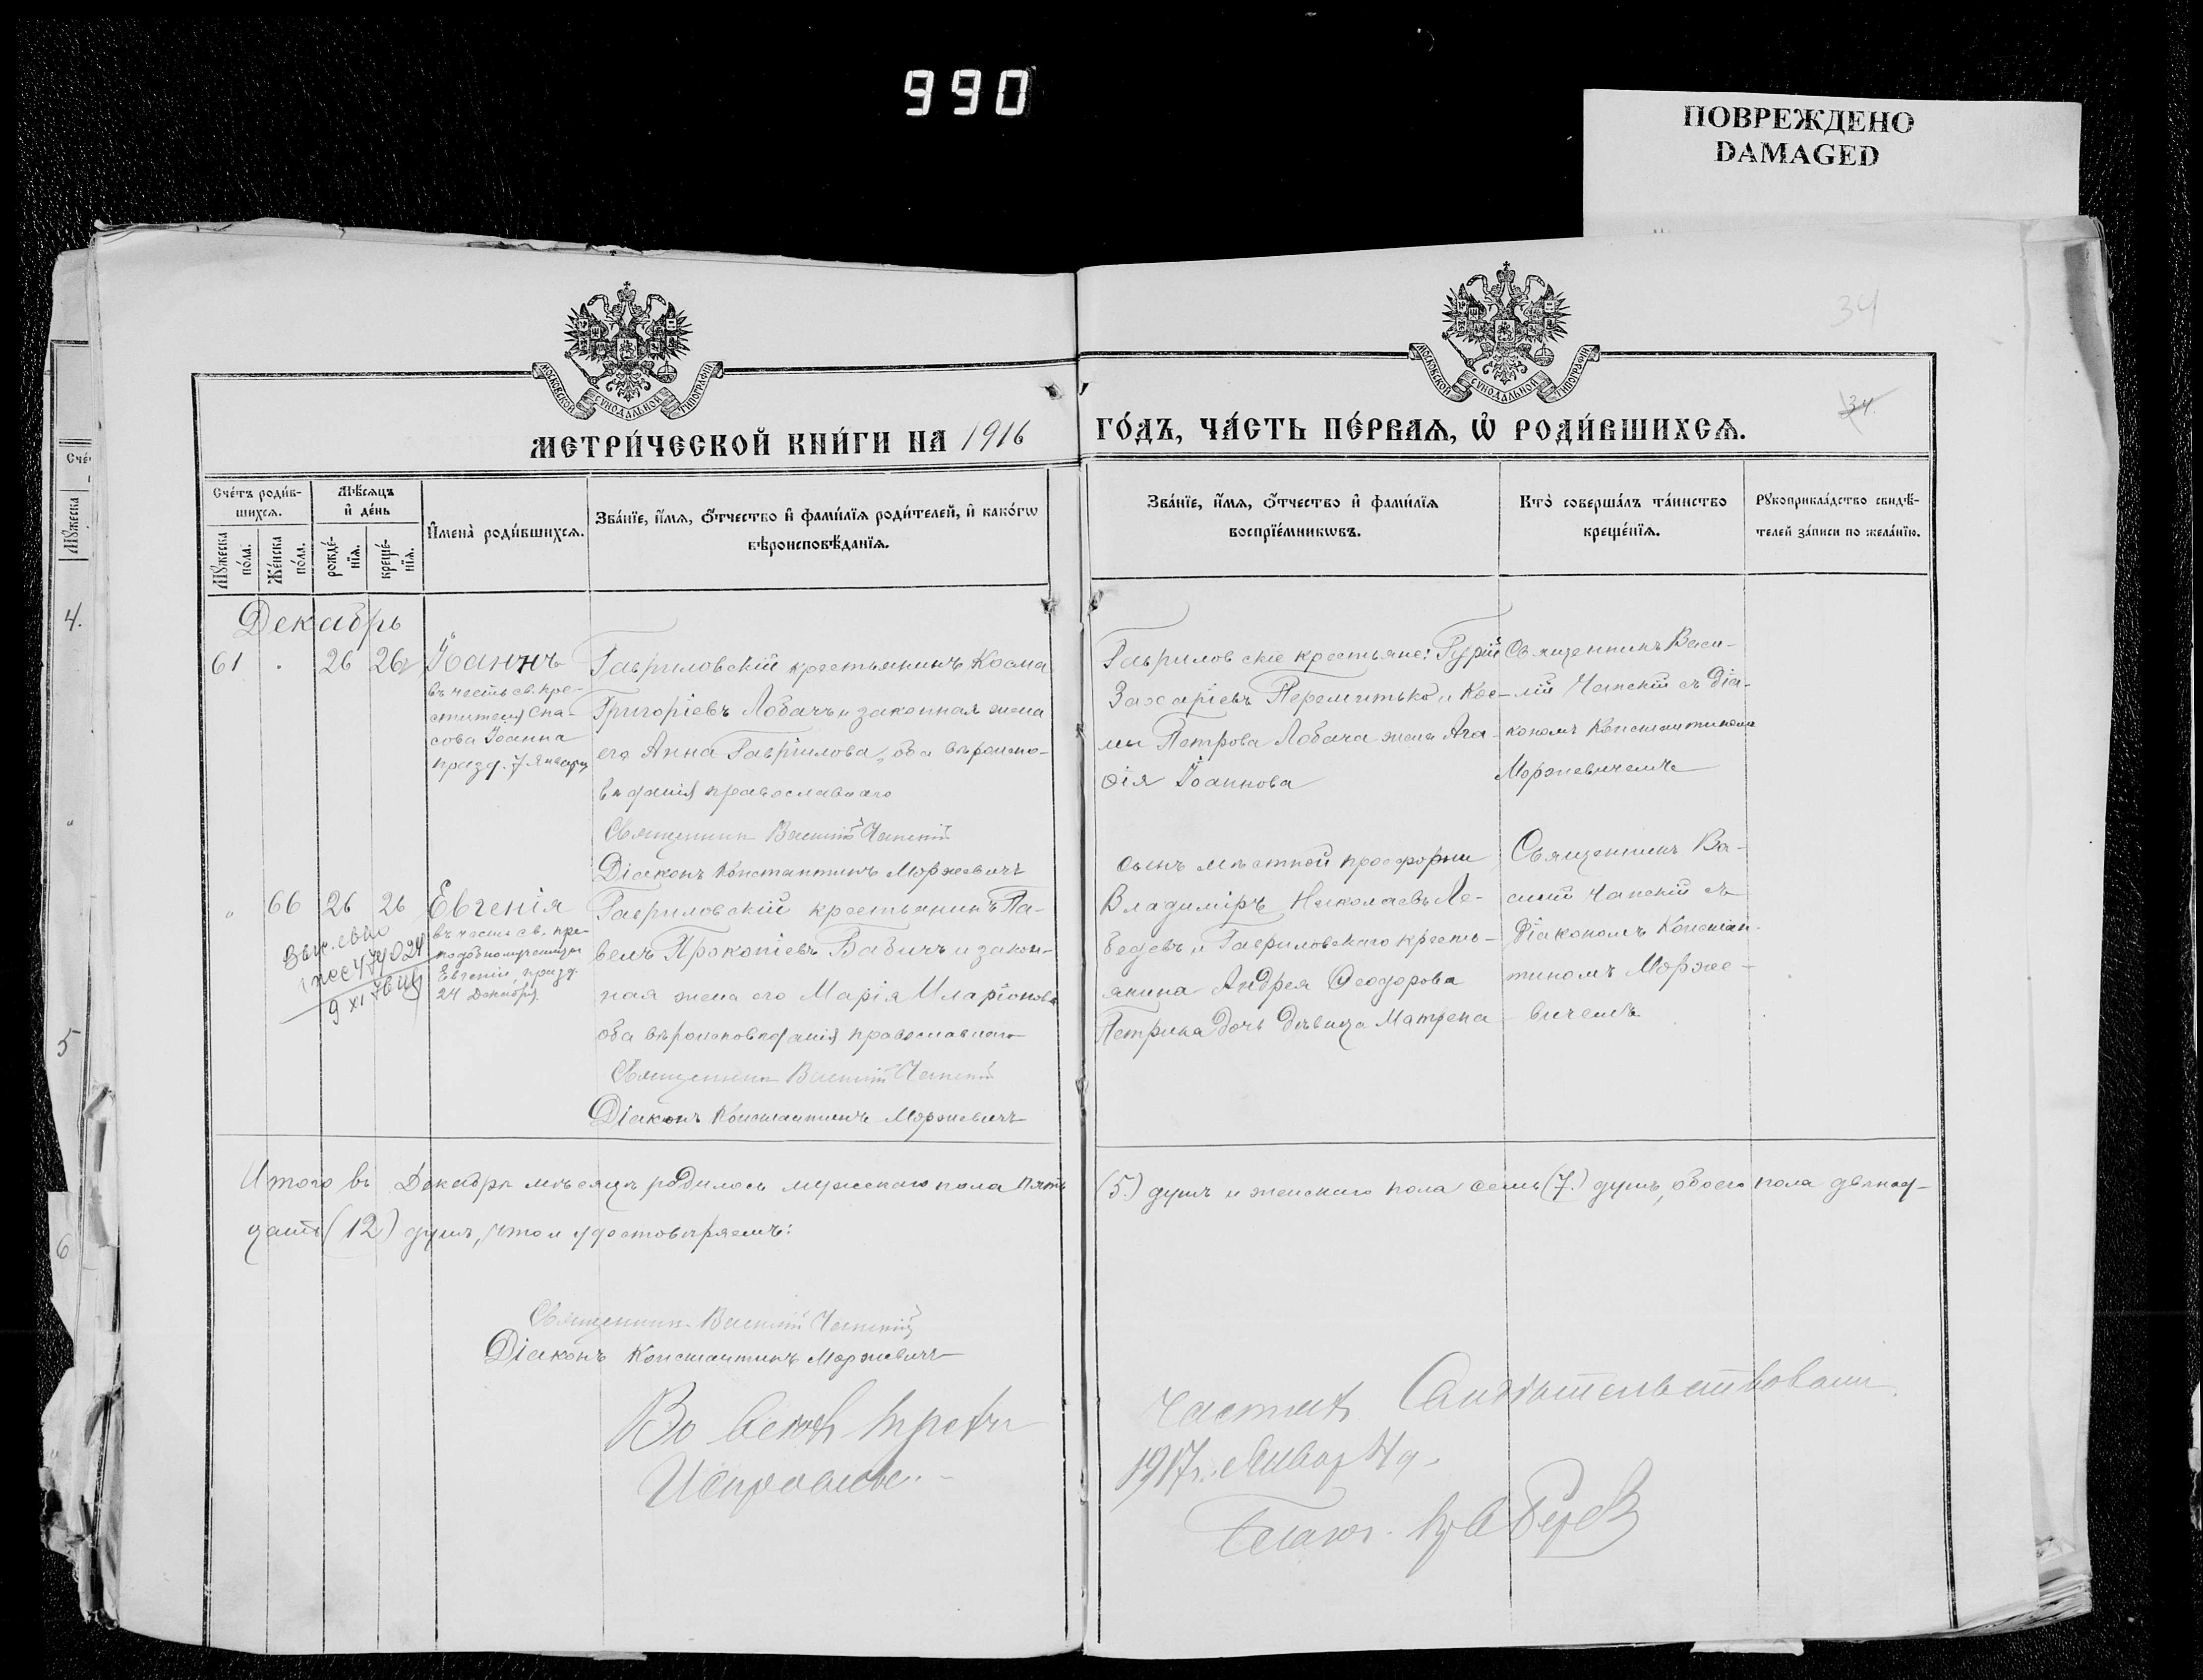 990
ПОВРЕЖДЕНО
DAMAGED
34
34
МОСКОВСКОЙ СѴНОДАЛЬНОЙ ТИПОГРАФІИ
МОСКОВСКОЙ СѴНОДАЛЬНОЙ ТИПОГРАФІИ
МЕТРИ́ЧЕСКОЙ КНИ́ГИ НА 1916
ГО́ДЪ, ЧА́СТЬ ПЕ́РВАѦ, Ѡ҆ РОДИ́ВШИХСѦ.
Сче́тъ роди́в-
шихсѧ.
Мѣ́сѧцъ
и҆ де́нь
Мꙋ́жеска
по́ла.
Же́нска
по́ла.
рожде́-
нїѧ.
креще́-
нїѧ.
И҆мена̀ роди́вшихсѧ.
Зва́нїе, и҆́мѧ, ѻ҆́тчество и҆ фами́лїѧ роди́телей, и҆ како́гѡ
вѣроисповѣ́данїѧ.
Зва́нїе, и҆́мѧ, ѻ҆́тчество и҆ фами́лїѧ
воспрїе́мникѡвъ.
Кто̀ соверша́лъ та́инство
креще́нїѧ.
Рꙋкоприкла́дство свидѣ́-
телей за́писи по жела́нїю.
Сче́
Мꙋ́жеска
4.
5
6
Декабрь
61 . 26 26 Іоаннъ
въ честь св. кре-
стителя Спа-
сова Іоанна
празд. 7 Января
Гавриловскій крестьянинъ Косма
Григоріевъ Лобачъ и законная жена
его Анна Гавріилова, оба вѣроиспо-
вѣданія православнаго
Священникъ Василій Чапскій
Діаконъ Константинъ Моржевичъ
Гавриловскіе крестьяне: Гурій
Захаріевъ Перемитько и Кос-
мы Петрова Лобача жена Ага-
ѳія Іоаннова
Священникъ Васи-
лій Чапскій съ Діа-
кономъ Константиномъ
Моржевичемъ
" 66 26 26 Евгенія
въ честь св. пре-
подобномученицы
Евгеніи празд.
24 Декабря
Гавриловскій крестьянинъ Па-
велъ Прокопіевъ Бабичъ и закон-
ная жена его Марія Иларіонова
оба вѣроисповѣданія православнаго
Священникъ Василій Чапскій
Діаконъ Константинъ Моржевичъ
сынъ мѣстной просфорни
Владиміръ Николаевъ Ле-
бедевъ и Гавриловскаго кресть-
янина Андрея Ѳеодорова
Петрика дочь дѣвица Матрена
Священникъ Ва-
силій Чапскій съ
Діакономъ Констан-
тиномъ Морже-
вичемъ
Итого въ Декабрѣ мѣсяцѣ родилось мужского пола пять
(5) душъ и женскаго пола семь (7) душъ, обоего пола двѣнад-
цать (12) душъ, что и удостовѣряемъ:
Священникъ Василій Чапскій
Діаконъ Константинъ Моржевичъ
Во всѣхъ трехъ
частяхъ Свидѣтельствовалъ
1917 г. Январ